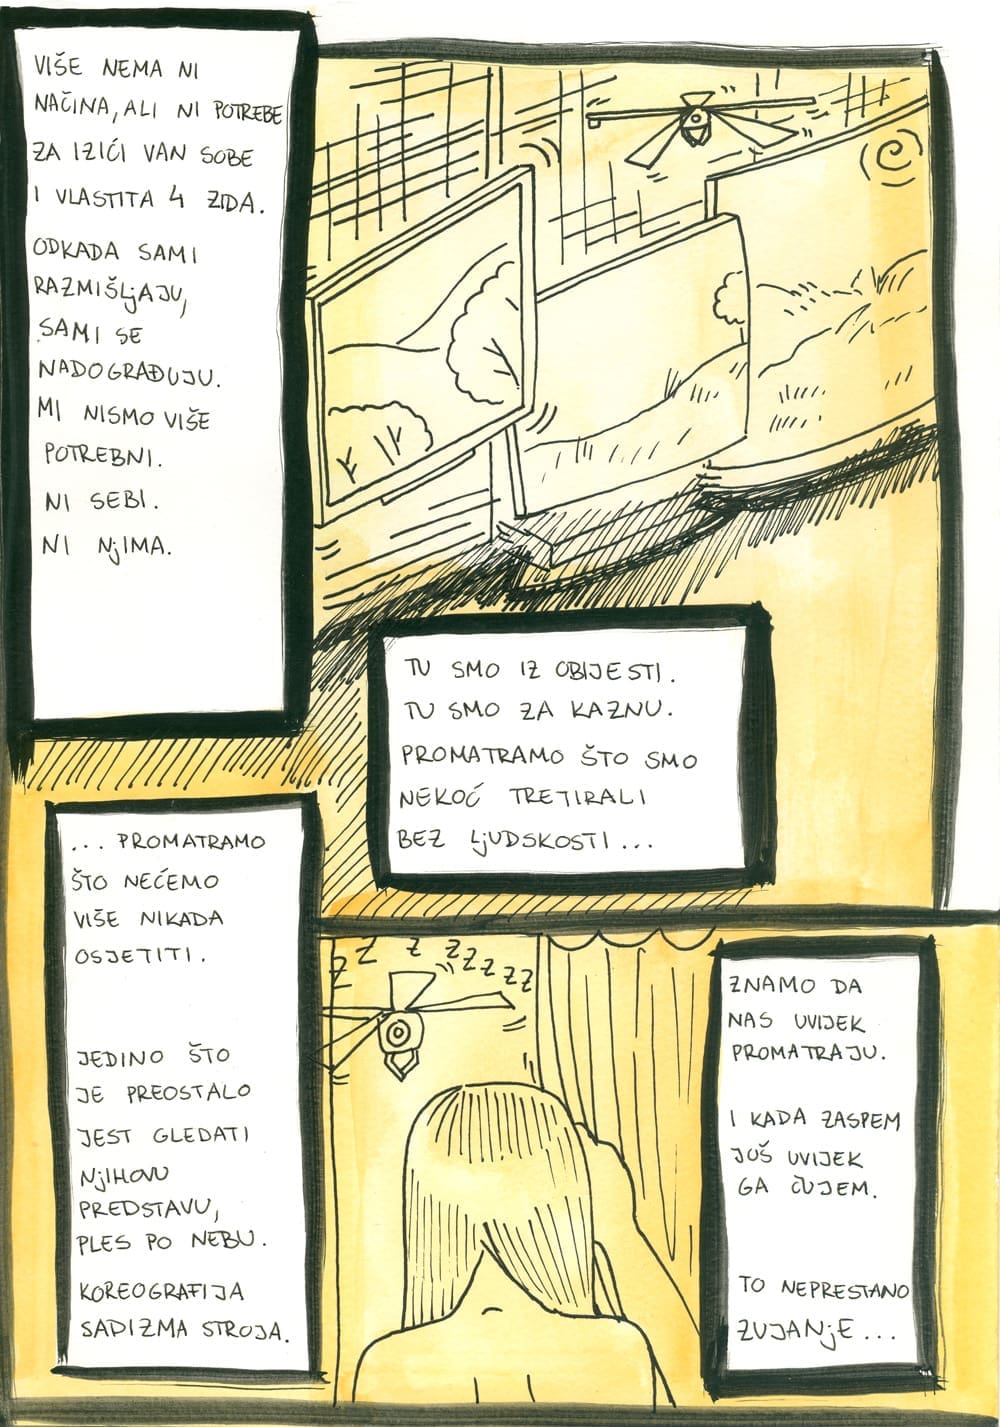 VIŠE NEMA NI
NAČINA, ALI NI POTREBE
ZA IZIĆI VAN SOBE
I VLASTITA 4 ZIDA.
ODKADA SAMI
RAZMIŠLjAJU,
SAMI SE
NADOGRAĐUJU.
MI NISMO VIŠE
POTREBNI.
NI SEBI.
NI NjIMA.
TU SMO IZ OBIJESTI.
TU SMO ZA KAZNU.
PROMATRAMO ŠTO SMO
NEKOĆ TRETIRALI
BEZ LjUDSKOSTI...
... PROMATRAMO
ŠTO NEĆEMO
VIŠE NIKADA
OSJETITI.
JEDINO ŠTO
JE PREOSTALO
JEST GLEDATI
NjIHOVU
PREDSTAVU,
PLES PO NEBU.
KOREOGRAFIJA
SADIZMA STROJA.
Z Z Z Z Z Z Z Z
ZNAMO DA
NAS UVIJEK
PROMATRAJU.
I KADA ZASPEM
JOŠ UVIJEK
GA ČUJEM.
TO NEPRESTANO
ZUJANjE...